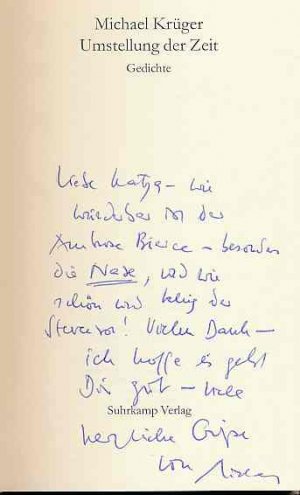 Michael Krüger
Umstellung der Zeit
Gedichte
Liebe Katja – wie
wunderbar ist der
Ambrose Bierce – besonders
die Nase, und wie
schön und
Vielen Dank –
ich hoffe es geht
Dir gut – viele
Suhrkamp Verlag
herzliche Grüße
von